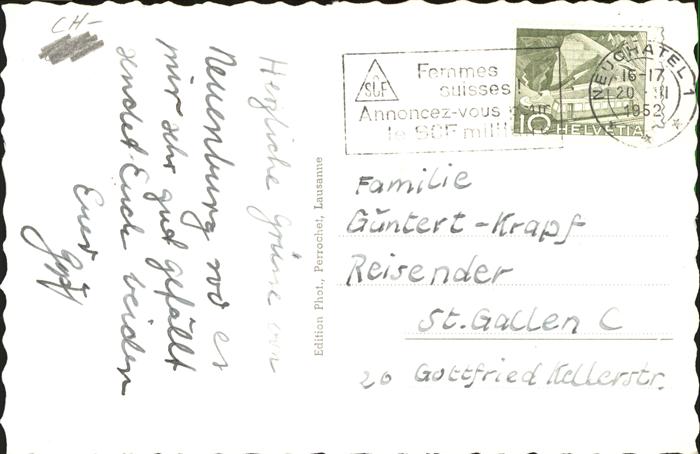 CH-
Herzliche Grüsse von
Neuenburg wo es
mir sehr gut gefällt
sendet Euch beiden
Euer
Edition Phot., Perrochet, Lausanne
SCF
Femmes
suisses
Annoncez-vous pour
le SCF milit
NEUCHATEL 1
16-17
20. III
1952
10 HELVETIA
Familie
Güntert-Krapf
Reisender
St. Gallen C
20 Gottfried Kellerstr.